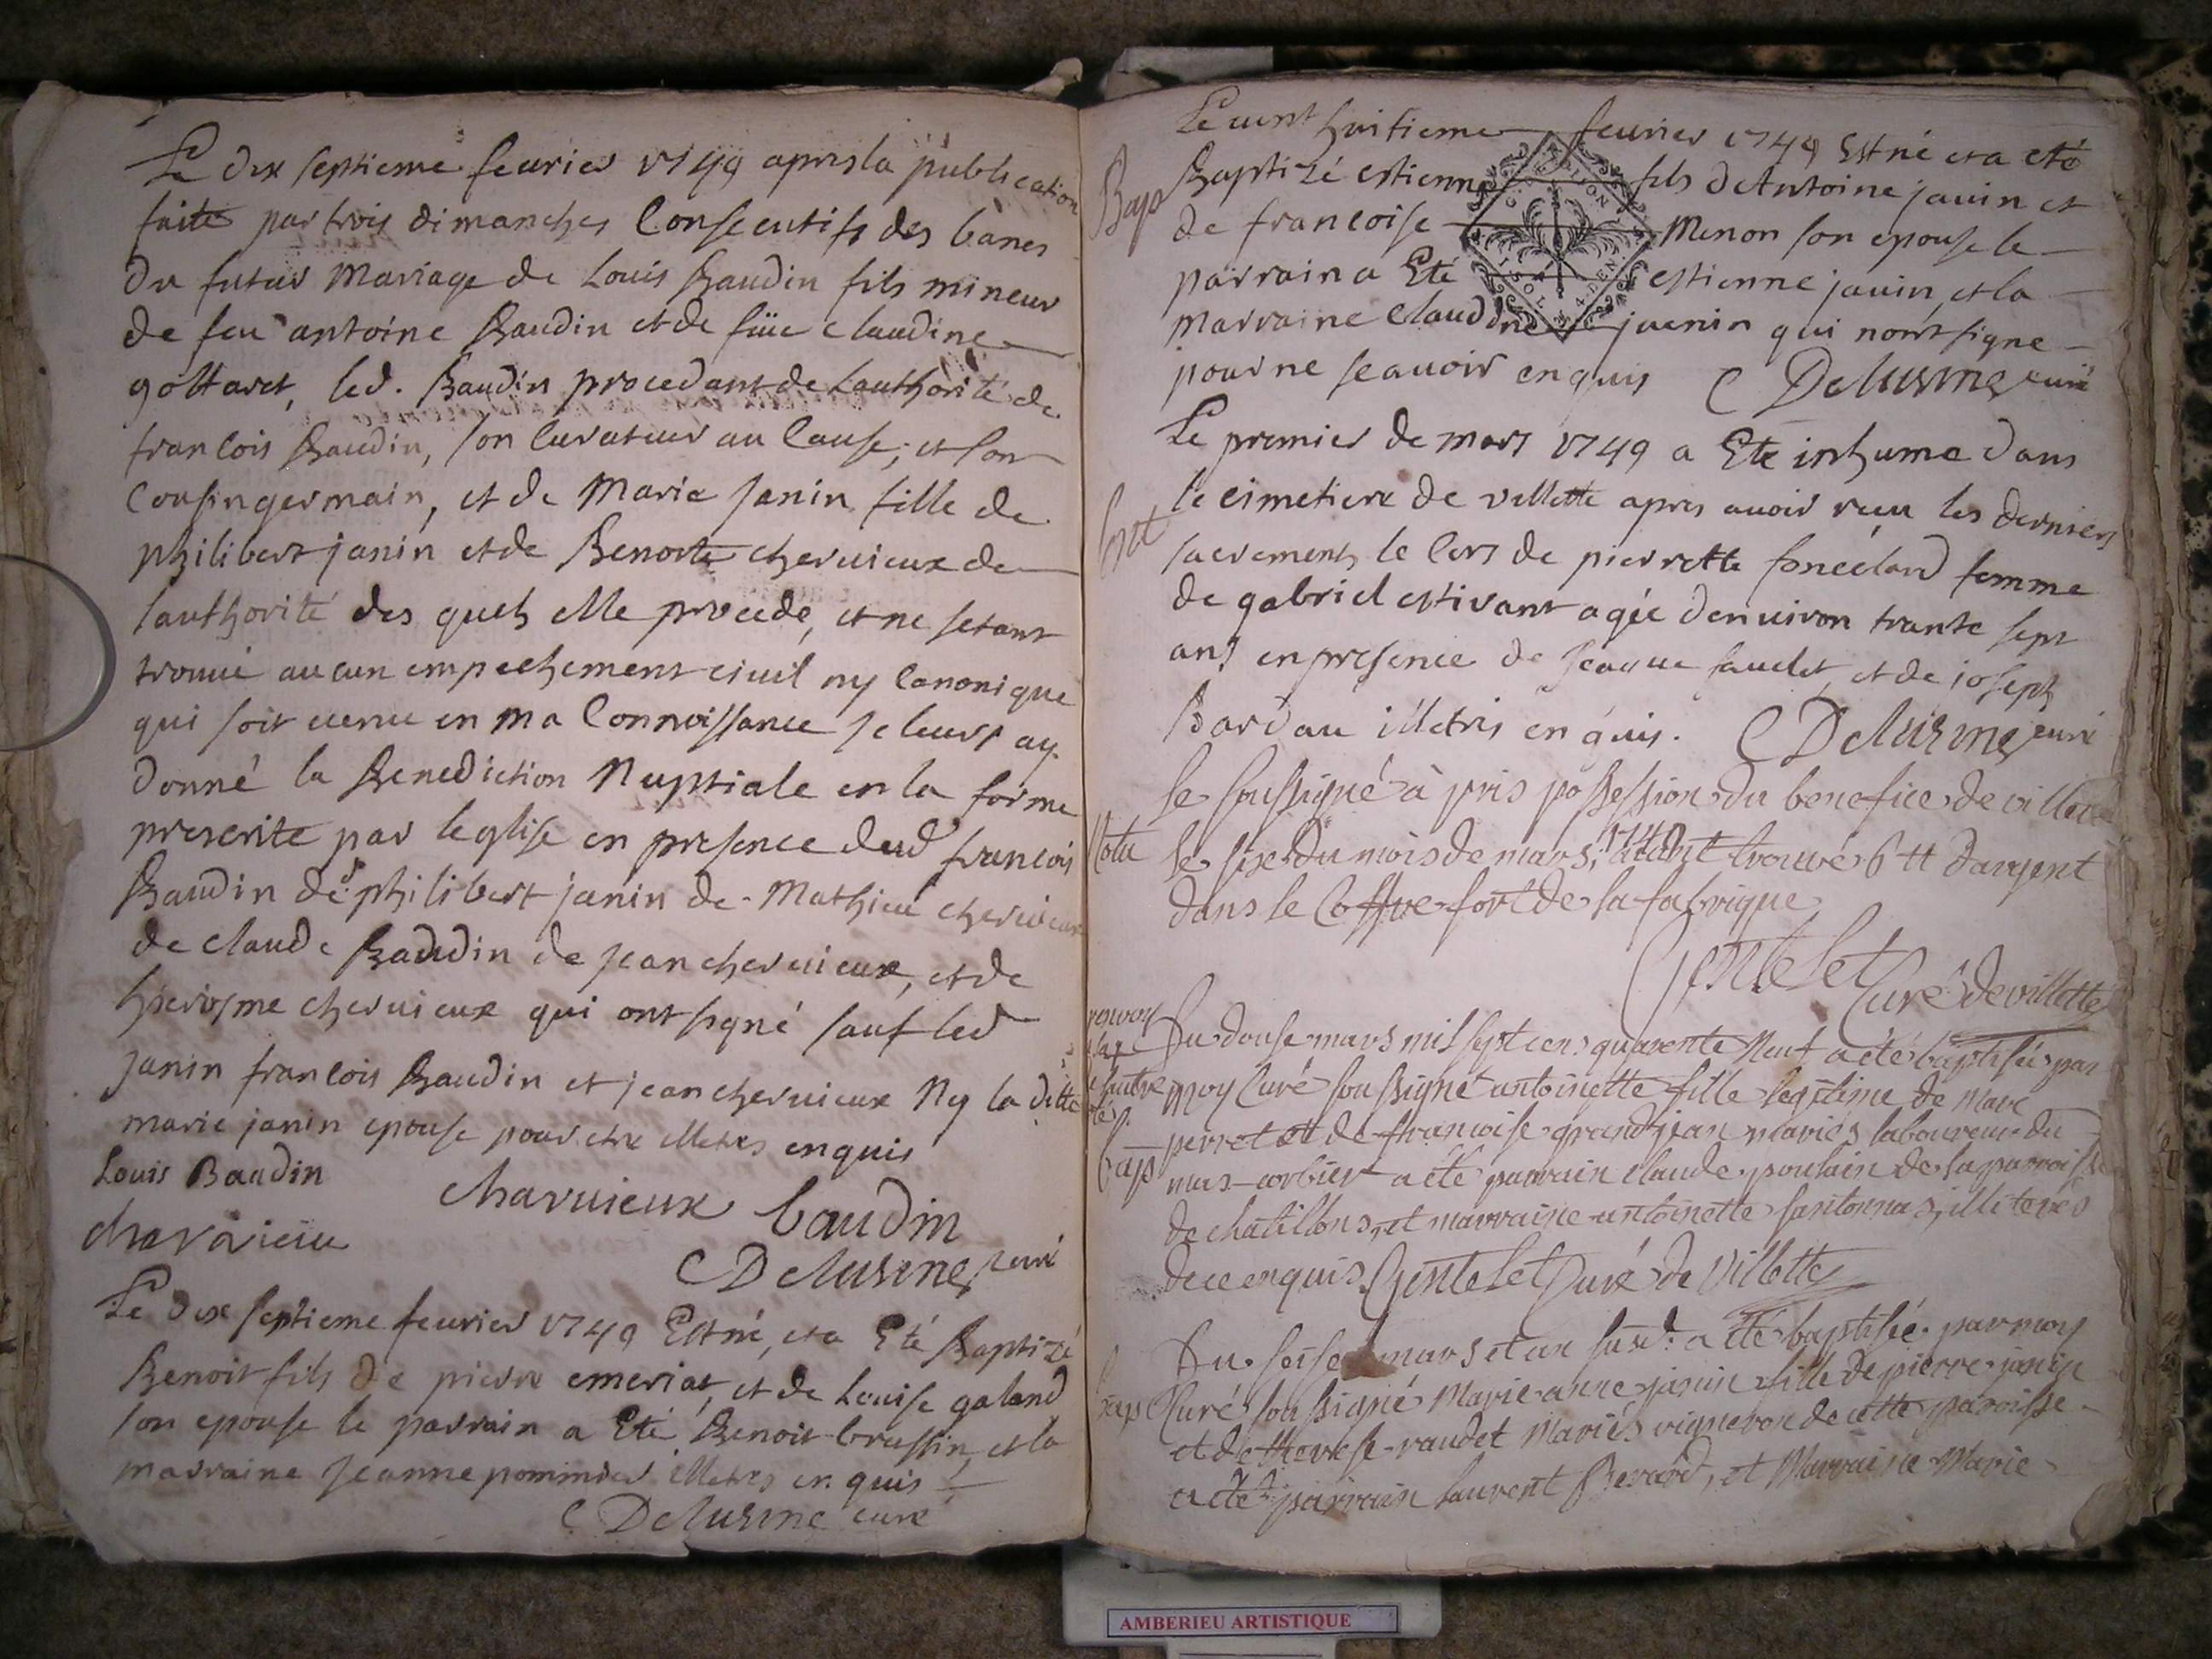 Le dix septieme feurier 1749 apres la publication
faite par trois dimanches Consecutifs des bancs
du futur Mariage de Louis Baudin fils mineur
de feu antoine Baudin et de füe claudine
gottaret, led. Baudin procedant de lauthorité de
francois Baudin, son curateur au cause, et son
Cousin germain, et de Marie Janin fille de
philibert janin et de Benoite cheruieux de
lauthorité des quels elle procede, et ne setant
trouué aucun empechement ciuil ny Canonique
qui soit uenu en ma Connoissance Je leurs ay
donné la Benediction Nuptiale en la forme
prescrite par leglise en presence dud francois
Baudin de philibert janin de Mathieu cheruieux
de claude Baudin de jean cheruieux, et de
hierosme cheruieux qui ont signé sauf led
janin francois Baudin et jean cheruieux Ny la ditte
marie janin epouse pour etre illetres enquis
Louis Baudin
Charuieux baudin
C Delusine curé
Le dix septieme feurier 1749 Est né, et a Eté Baptizé
Benoit fils de pierre emeriat, et de Louise galand
son epouse le parrain a Eté Benoit brussin, et la
marraine Jeanne pommier illetres enquis
C Delusine curé
Le uint huitieme feurier 1749 Est né et a eté
Bap Baptizé estienne fils d'Antoine janin et
de francoise Menon son epouse le
parrain a Eté estienne janin, et la
marraine Claudine juenin qui nont signe
pour ne scauoir enquis C Delusine curé
Le premier de mars 1749 a Eté inhume dans
le cimetiere de villette apres auoir receu les derniers
sacrements le Cors de pierrette femme
de gabriel estiuant agée denuiron trante sept
ans en presence de Jeaque faudet, et de joseph
Bardau illetris enquis. C Delusine curé
le soussigné à pris possession du benefice de villette
Nota le six du mois de mars, 1749 trouvé 6 tt dargent
dans le Coffre fort de la fabrique
Gentelet
Curé de villette
Du douse mars mil sept cens quarente Neuf a eté baptisée par
moy Curé soussigné antoinette fille legitime de Marc
perret et de francoise grandjean mariés laboureur du
bap mas corbier a été parrain claude poulain de la parroisse
de chatillon, et marraine antoinette illiterés
de ce enquis Gentelet Curé de Villette
Du seise mars et an susd. a été baptisée par moy
bap Curé soussigné Marie anne janin fille de pierre janin
et de therese raudet Mariés vigneron de cette paroisse
a été parrain laurent Berard, et Marraine Marie
AMBERIEU ARTISTIQUE